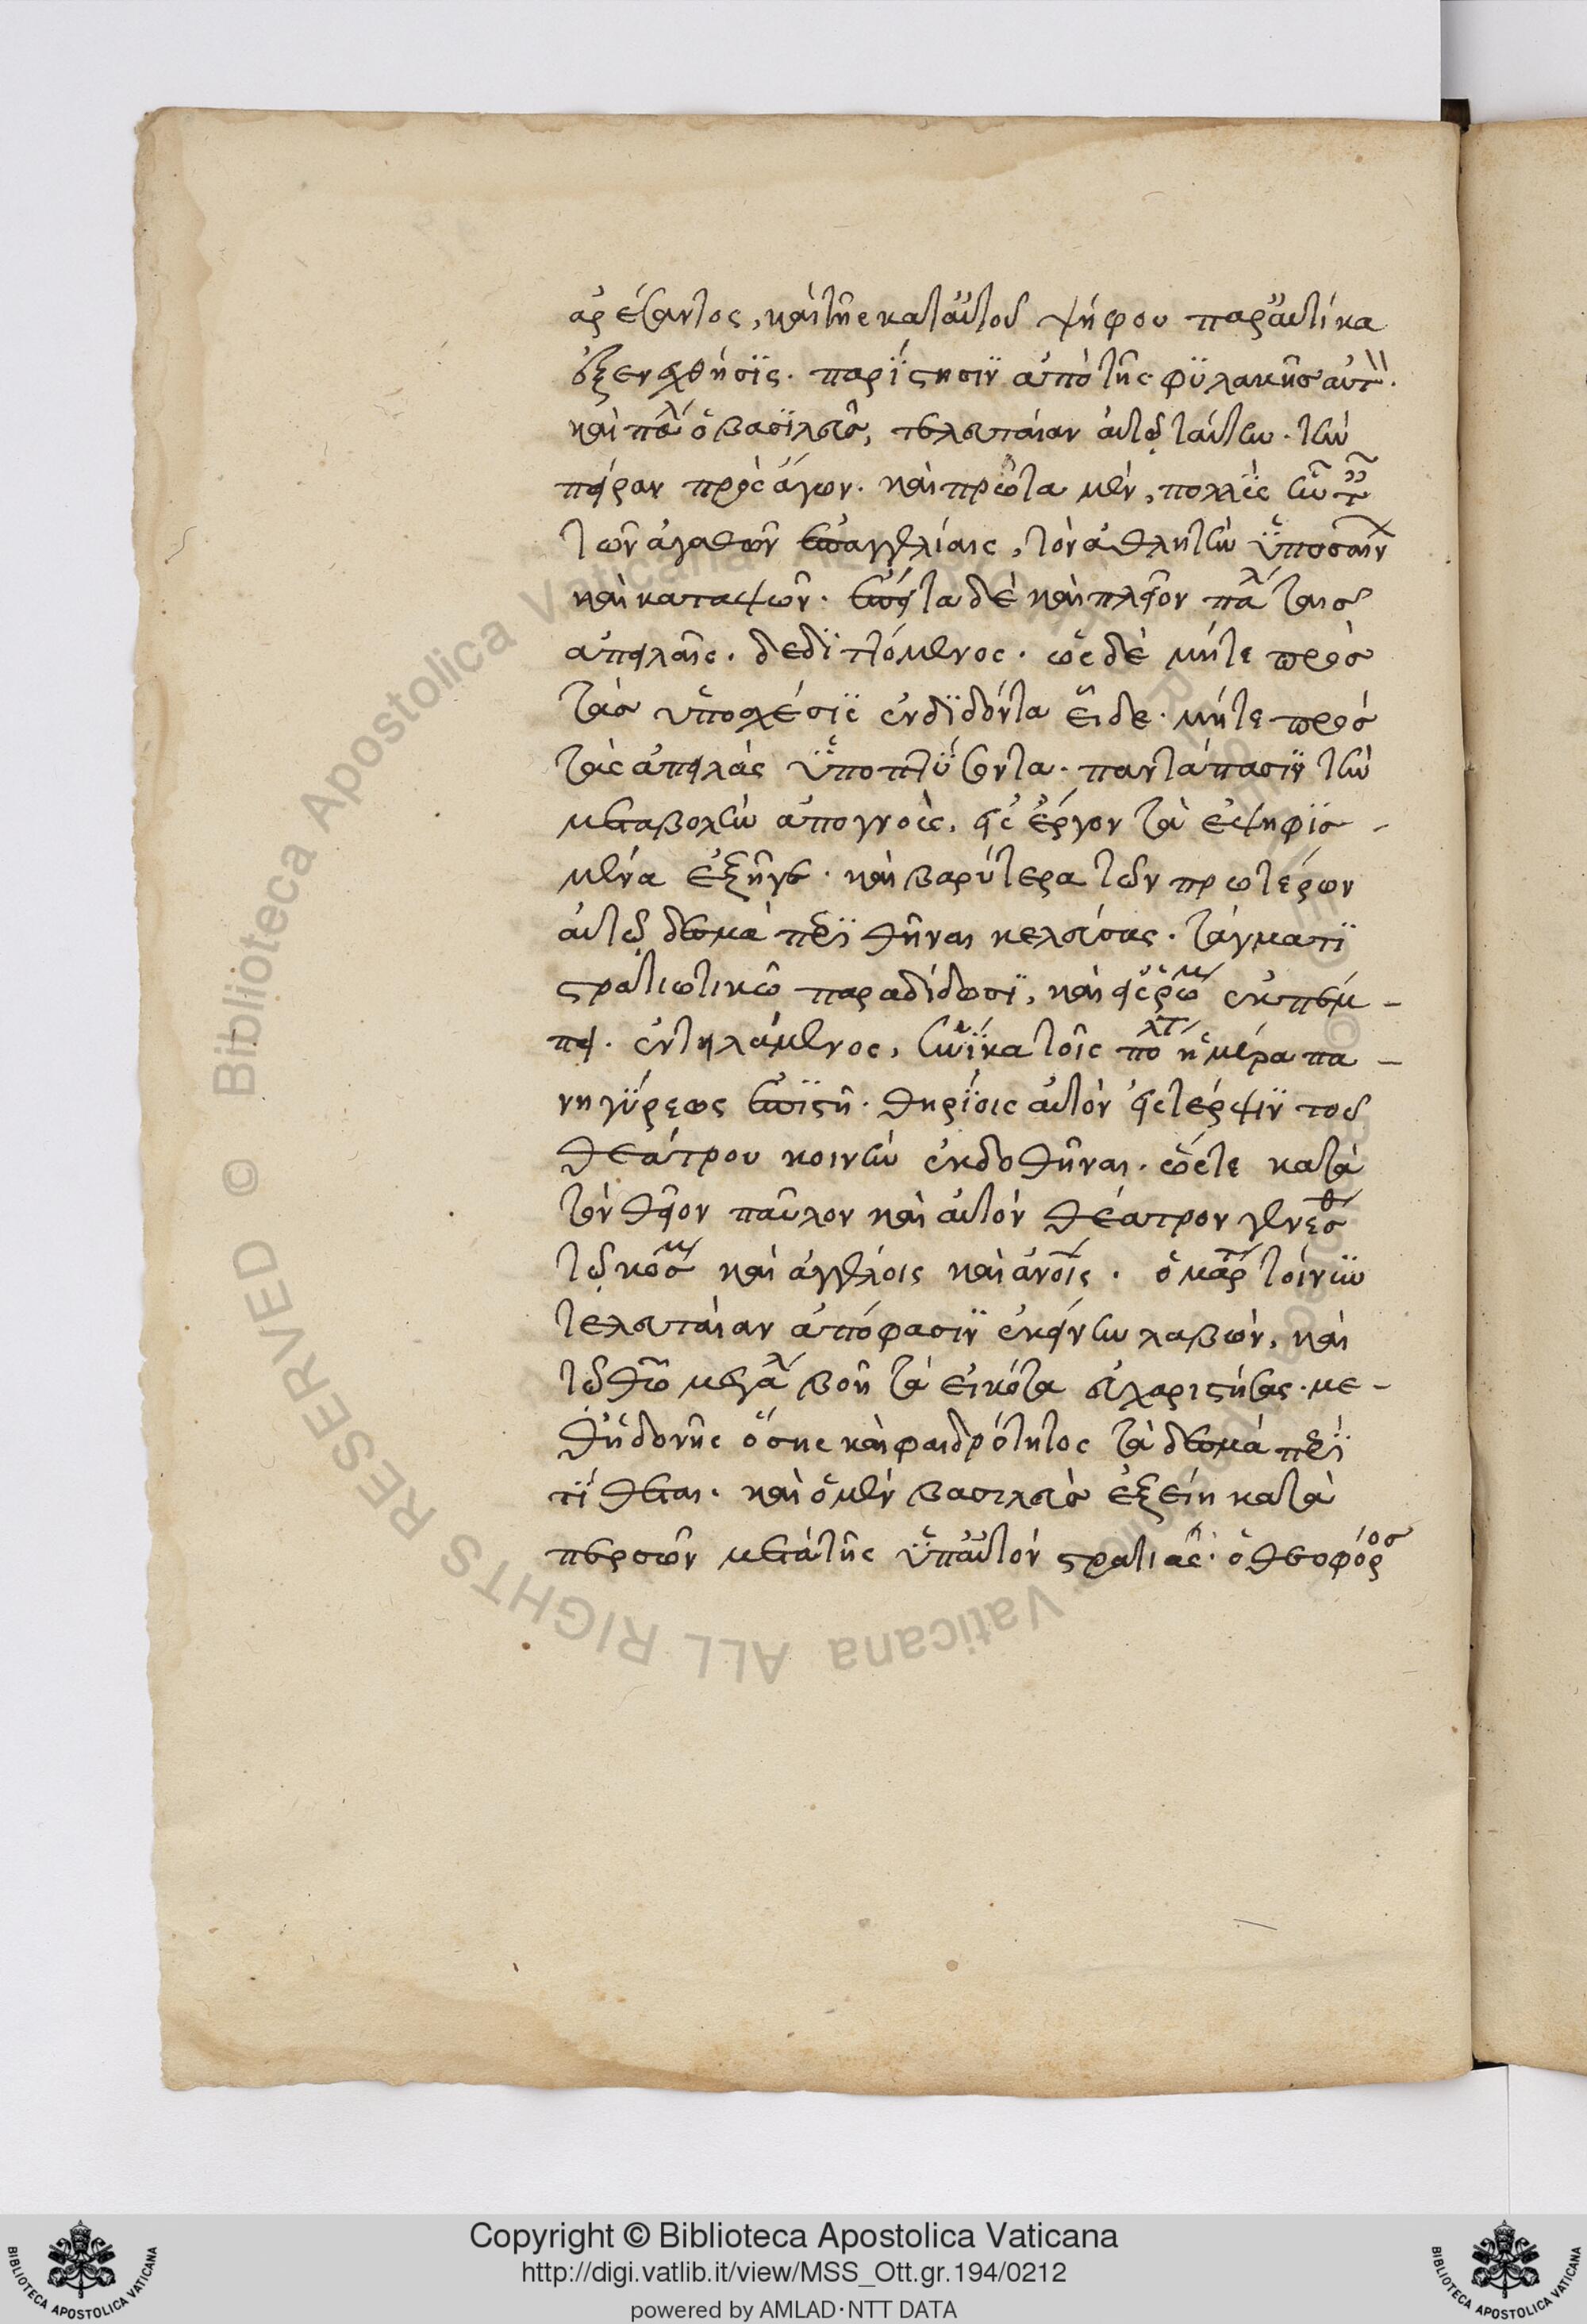 ἀρέσαντος, καὶ τῆς κατ' αὐτοῦ ψήφου παραυτίκα
ἐξενεχθήσης. παρίστησιν ἀπὸ τῆς φυλακῆς αὐτὸν.
καὶ πάλιν ὁ βασιλεὺς, τελευταίαν αὐτῷ ταύτην. τὴν
πεῖραν προσάγων. καὶ πρῶτα μὲν, πολλαῖς
τῶν ἀγαθῶν ἐπαγγελίαις, τὸν ἀθλητὴν ὑποσαίνων
καὶ καταψῶν. ἔπειτα δὲ καὶ πλεῖον πάλιν ταῖς
ἀπειλαῖς. δεδιττόμενος. ὡς δὲ μήτε πρὸς
τὰς ὑποσχέσεις ἐνδιδόντα εἶδε. μήτε πρὸς
τὰς ἀπειλὰς ὑποπτήσσοντα. παντάπασιν τὴν
μεταβολὴν ἀπογνοὺς. εἰς ἔργον τὰ ἐψηφισ-
μένα ἐξῆγε. καὶ βαρύτερα τῶν προτέρων
αὐτῷ δεσμὰ περιτεθῆναι κελεύσας. τάγματι
στρατιωτικῶ παραδίδωσι, καὶ εἰς ῥώμην ἐκπέμ-
πει. ἐντειλάμενος, ἡνίκα τοῖς πολίταις ἡμέρα πα-
νηγύρεως ἐπιστῆ. θηρίοις αὐτὸν εἰς τέρψιν τοῦ
θεάτρου κοινὴν ἐκδοθῆναι. ὥστε κατὰ
τὸν θεῖον παῦλον καὶ αὐτὸν θέατρον γενέσθαι
τῷ κόσμω καὶ ἀγγέλοις καὶ ἀνοῖς. ὁ μάρτυς τοίνυν
τελευταίαν ἀπόφασιν ἐκείνην λαβὼν, καὶ
τῷ θῶ μεγάλη βοῆ τὰ εἰκότα εὐχαριστήσας. με-
θ' ἡδονῆς ὅσης καὶ φαιδρότητος τὰ δεσμὰ περι
τίθεται. καὶ ὁ μὲν βασιλεὺς ἐξείη κατὰ
περσῶν μετὰ τῆς ὑπ' αὐτὸν στρατιᾶς. ὁ θεοφόρος
Copyright © Biblioteca Apostolica Vaticana
http://digi.vatlib.it/view/MSS_Ott.gr.194/0212
powered by AMLAD·NTT DATA